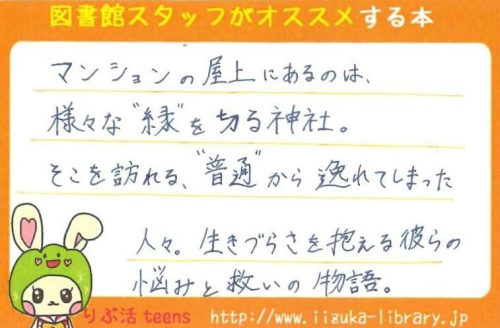 図書館スタッフがオススメする本
マンションの屋上にあるのは、
様々な"縁"を切る神社。
そこを訪れる、"普通"から逸れてしまった
人々。生きづらさを抱える彼らの
悩みと救いの物語。
りぶ活teens http://www.iizuka-library.jp